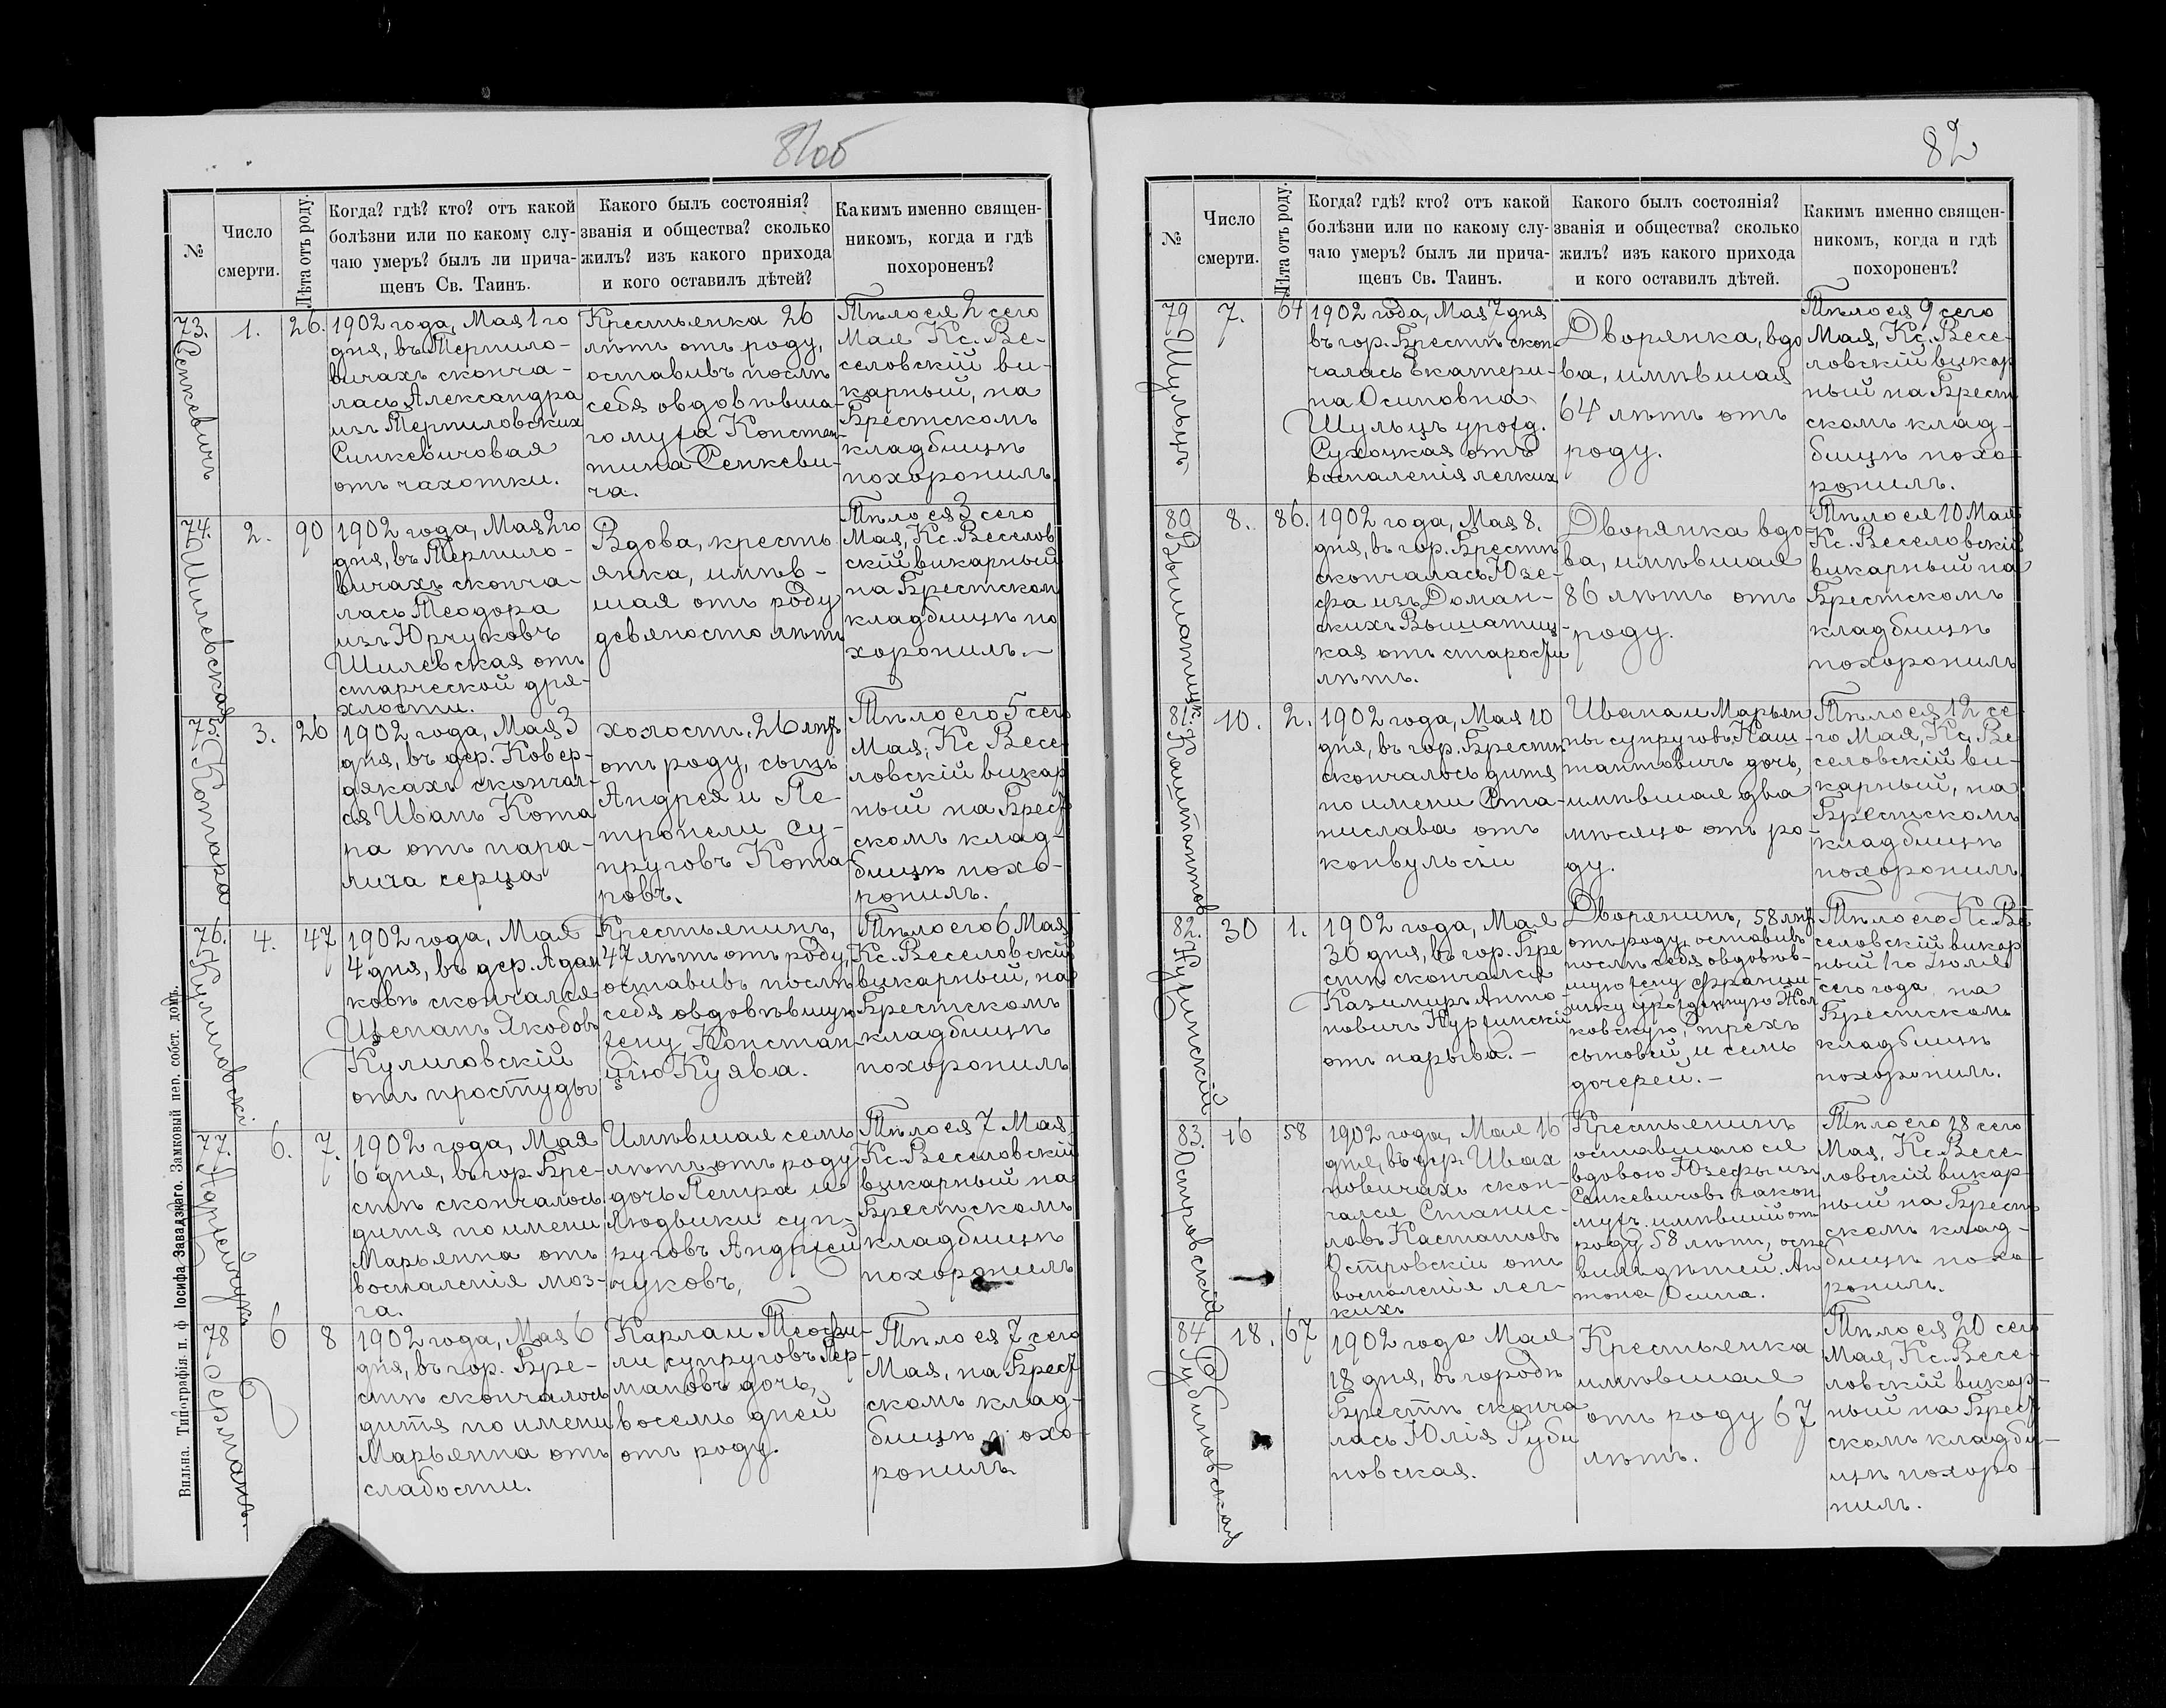 81об
№
Число
смерти.
Лѣта отъ роду.
Когда? гдѣ? кто? отъ какой
болѣзни или по какому слу-
чаю умеръ? былъ ли прича-
щенъ Св. Таинъ.
Какого былъ состоянія?
званія и общества? сколько
жилъ? изъ какого прихода
и кого оставилъ дѣтей?
Какимъ именно священ-
никомъ, когда и гдѣ
похороненъ?
73.
Сенкевичъ
1.
26.
1902 года, Мая 1 го
дня, въ Терпило-
вичахъ сконча-
лась Александра
изъ Терпиловскихъ
Синкевичовая
отъ чахотки.
Крестьянка 26
лѣтъ отъ роду,
оставивъ послѣ
себя овдовѣвша-
го мужа Констан-
тина Сенкеви-
ча.
Тѣло ея 2 сего
Мая Кс. Ве-
селовскій ви-
карный, на
Брестскомъ
кладбищѣ
похоронилъ.
74.
Шилевская
2.
90
1902 года, Мая 2 го
дня, въ Терпило-
вичахъ сконча-
лась Теодора
изъ Юрчуковъ
Шилевская отъ
старческой дря-
хлости.
Вдова, кресть
янка, имѣв-
шая отъ роду
девяносто лѣтъ
Тѣло ея 3 сего
Мая, Кс. Веселов
скій викарный
на Брестском
кладбищѣ по
хоронилъ.-
75.
Котара
3.
26
1902 года, Мая 3
дня, въ дер. Ковер-
дякахъ скончал-
ся Иванъ Кота
ра отъ пара-
лича серца
холостъ. 26 лѣт
отъ роду, сынъ
Андрея и Пе-
тронели су-
пруговъ Кота
ровъ.
Тѣло его 5 сего
Мая, Кс Весе-
ловскій викар
ный на Брест
скомъ клад-
бищѣ похо-
ронилъ.
76.
Кулиговскі
4.
47
1902 года, Мая
4 дня, въ дер. Адам
ковѣ скончался
Щепанъ Якобовъ
Кулиговскій
отъ простуды
Крестьянинъ,
47 лѣтъ отъ роду,
оставивъ послѣ
себя овдовѣвшую
жену Констан
цію Куява.
Тѣло его 6 Мая
Кс. Веселовскій
викарный, на
Брестскомъ
кладбищѣ
похоронилъ
77.
6.
7.
1902 года, Мая
6 дня, въ гор. Бре-
стѣ скончалось
дитя по имени
Марьянна отъ
воспаленія моз-
га.
Имѣвшая семь
лѣтъ отъ роду
дочь Петра и
Людвики суп-
руговъ Андрей
чуковъ,
Тѣло ея 7 Мая
Кс. Веселовскій
викарный на
Брестскомъ
кладбищѣ
похоронилъ
78
.
6
8
1902 года, Мая 6
дня, въ гор. Бре-
стѣ скончалось
дитя по имени
Марьянна отъ
слабости.
Карла и Теофи-
ли супруговъ Гер-
мановъ дочь,
восемь дней
отъ роду.
Тѣло ея 7 сего
Мая, на Брест
скомъ клад-
бищѣ похо-
ронилъ
Вильна. Типографія п. ф. Іосифа Завадзкаго. Замковый пер. собст. домъ.
82
№
Число
смерти.
Лѣта отъ роду.
Когда? гдѣ? кто? отъ какой
болѣзни или по какому слу-
чаю умеръ? былъ ли прича-
щенъ Св. Таинъ.
Какого былъ состоянія?
званія и общества? сколько
жилъ? изъ какого прихода
и кого оставилъ дѣтей.
Какимъ именно священ-
никомъ, когда и гдѣ
похороненъ?
79
Шульцъ
7.
64
1902 года, Мая 7 дня
въ гор. Брестѣ скон-
чалась Екатери-
на Осиповна
Шульцъ урожд.
Сухоцкая отъ
воспаленія легких
Дворянка, вдо
ва, имѣвшая
64 лѣтъ отъ
роду.
Тѣло ея 9 сего
Мая, Кс. Весе-
ловскій викар
ный на Брест
скомъ клад-
бищѣ похо-
ронилъ.
80
Вышатицк.
8.
86.
1902 года, Мая 8.
дня, въ гор. Брестѣ
скончалась Юзе-
фа изъ Доман-
скихъ Вышатиц
кая отъ старости
лѣтъ.
Дворянка вдо-
ва, имѣвшая
86 лѣтъ отъ
роду.
Тѣло ея 10 Мая
Кс. Веселовскій
викарный на
Брестскомъ
кладбищѣ
похоронилъ
81.
Каштантов
10.
2.
1902 года, Мая 10
дня, въ гор. Брестѣ
скончалось дитя
по имени Ста-
нислава отъ
конвульсіи
Ивана и Марьян
ны супруговъ Каш-
тантовичъ дочь,
имѣвшая два
мѣсяца отъ ро-
ду.
Тѣло ея 12 се-
го Мая, Кс. Ве
селовскій ви-
карный, на
Брестскомъ
кладбищѣ
похоронилъ
82.
30
1.
1902 года, Мая
30 дня, въ гор. Бре
стѣ скончался
Казимиръ Анто-
новичъ
отъ нарыва.-
Дворянинъ, 58 лѣт
отъ роду, оставивъ
послѣ себя овдовѣв-
шую жену Франци-
шку урожденную
ковскую, трехъ
сыновей, и семь
дочерей.-
Тѣло его Кс. Ве
селовскій викар
ный 1 го Іюня
сего года на
Брестскомъ
кладбищѣ
похоронилъ.
83.
Островскій
16
58
1902 года, Мая 16
дня, въ дер. Ивах
новичахъ скон-
чался Станис-
лавъ
Островскій отъ
воспаленія лег-
кихъ
Крестьянинъ
оставшаго ся
вдовою Юзефы изъ
Сенкевичовъ закон.
мужъ имѣвшій отъ
роду 58 лѣтъ, оста
вилъ дѣтей. Ан
тона Осипа.
Тѣло его 18 сего
Мая, Кс. Весе-
ловскій викар-
ный на Брест
скомъ клад-
бищѣ похо-
ронилъ.
84
Рубиновская
18.
67
1902 года Мая
18 дня, въ городѣ
Брестѣ сконча
лась Юлія Руби
новская.
Крестьянка
имѣвшая
отъ роду 67
лѣтъ.
Тѣло ея 20 сего
Мая, Кс. Весе-
ловскій викар-
ный на Брест
скомъ кладби-
щѣ похоро-
нилъ.